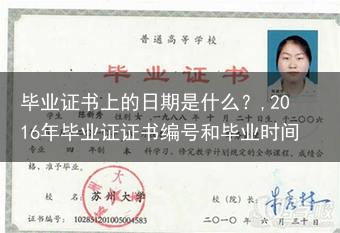 普通高等学校
毕业证书
毕业证书上的日期是什么？,20
16年毕业证证书编号和毕业时间
学生 陈新秀 性别 女,一九八八年 十 月 二十 日生,于二〇〇六
专业 四 年制 本 科学习,修完教学计划规定的全部课程,成绩合
格,准予毕业。
校 名: 苏州大学 校(院)长:
证书编号: 102851201005004583 二〇一〇年 六 月三十日